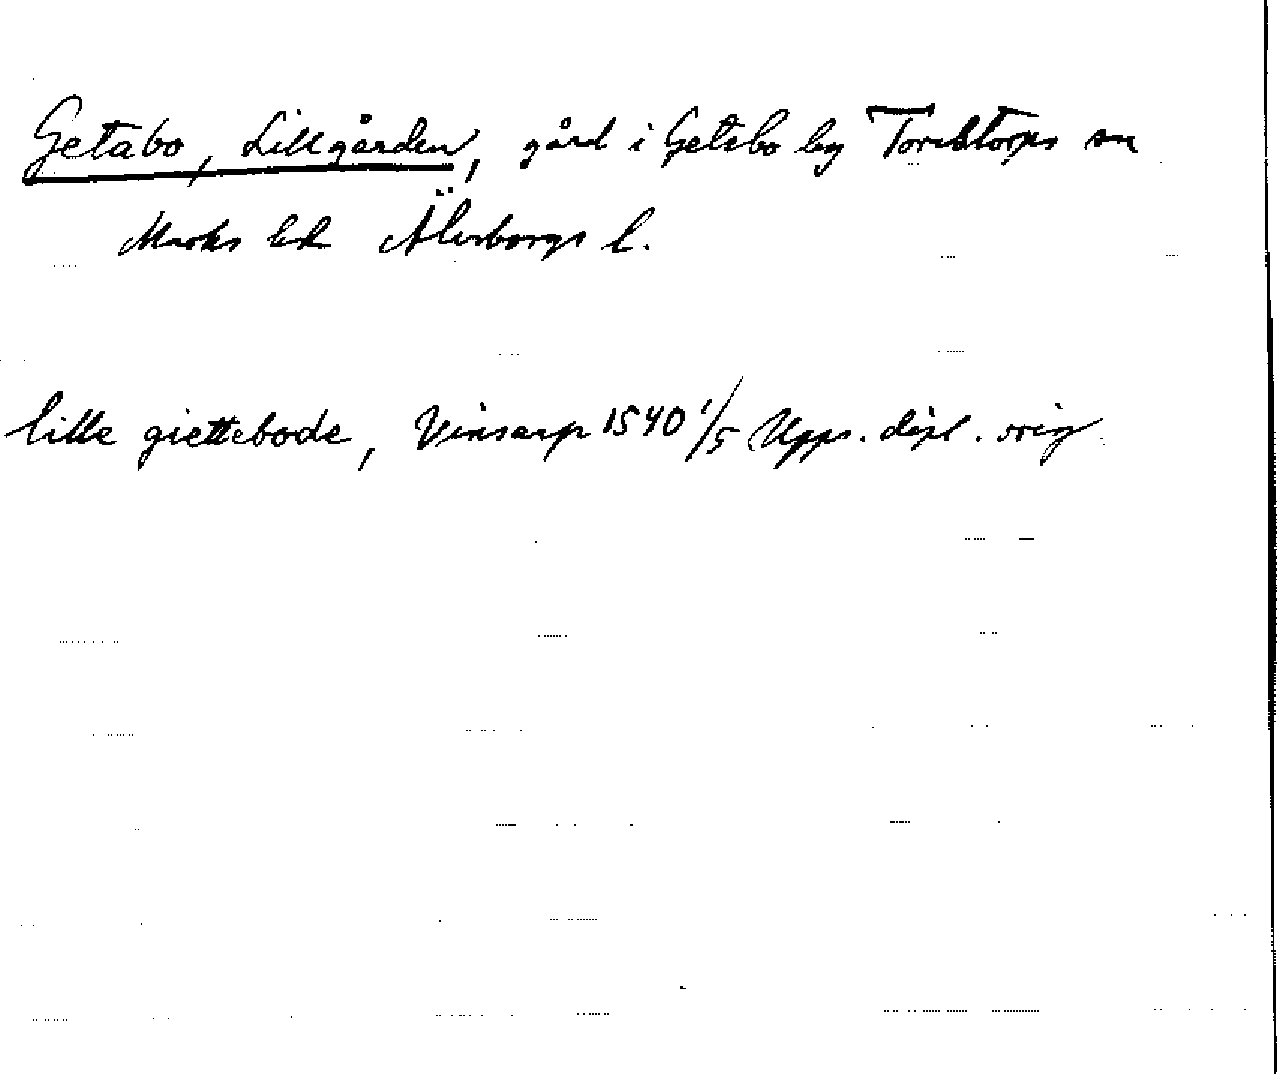 Getabo, Lillgården, gård i Getabo by Torestorps sn
Marks hd Älvsborgs l.
lille giettebode, Vinsarp 1540 1/5 Upps. dipl. orig